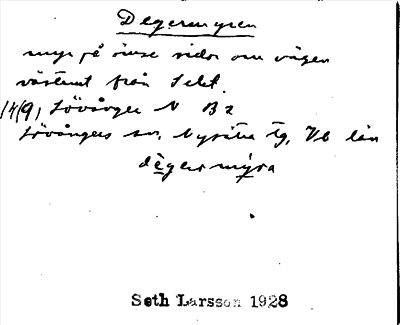 Degermyren
myr på ömse sidor om vägen
västerut från Selet.
1419, Lövånger N B2
Lövångers sn, Nysätra tg, Vb län
dègermy̌ra
Seth Larsson 1928